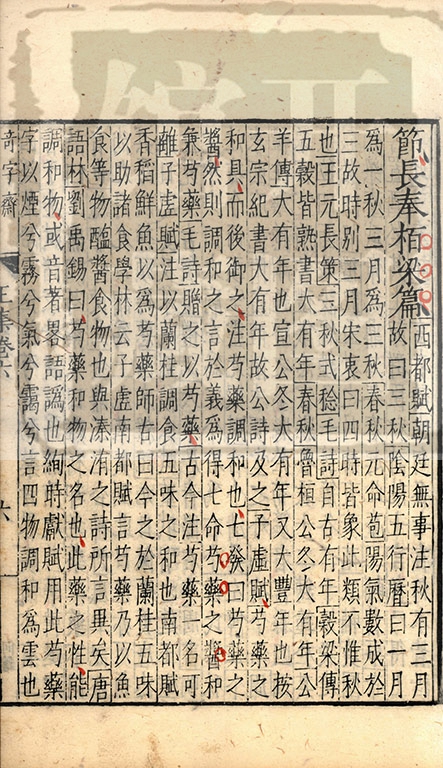 節長奉栢梁篇
西都賦朝廷無事注秋有三月
故曰三秋陰陽五行曆曰一月
為一秋三月為三秋春秋元命苞陽氣數成於
三故時別三月宋衷曰四時皆象此類不惟秋
也王元長策三秋式稔毛詩自古有年穀梁傳
五穀皆熟書大有年春秋魯桓公冬大有年公
羊傳大有年也宣公冬大有年又大豐年也按
玄宗紀書大有年故公詩及之子虛賦芍藥之
和具而後御之注芍藥調和也七發曰芍藥之
醬然則調和之言於義為得七命芍藥之醬和
兼芍藥毛詩贈之以芍藥古今注芍藥一名可
離子虛賦注以蘭桂調食五味之和也南都賦
香稻鮮魚以為芍藥師古曰今之於蘭桂五味
以助諸食學林云子虛南都賦言芍藥乃以魚
食等物醢醬食物也與溱洧之詩所言異矣唐
語林劉禹錫曰芍藥和物之名也此藥之性能
調和物或音著畧語訛也絢時獻賦用此芍藥
字以煙兮霧兮氣兮靄兮言四物調和為雲也
奇字齋
王集卷六
六